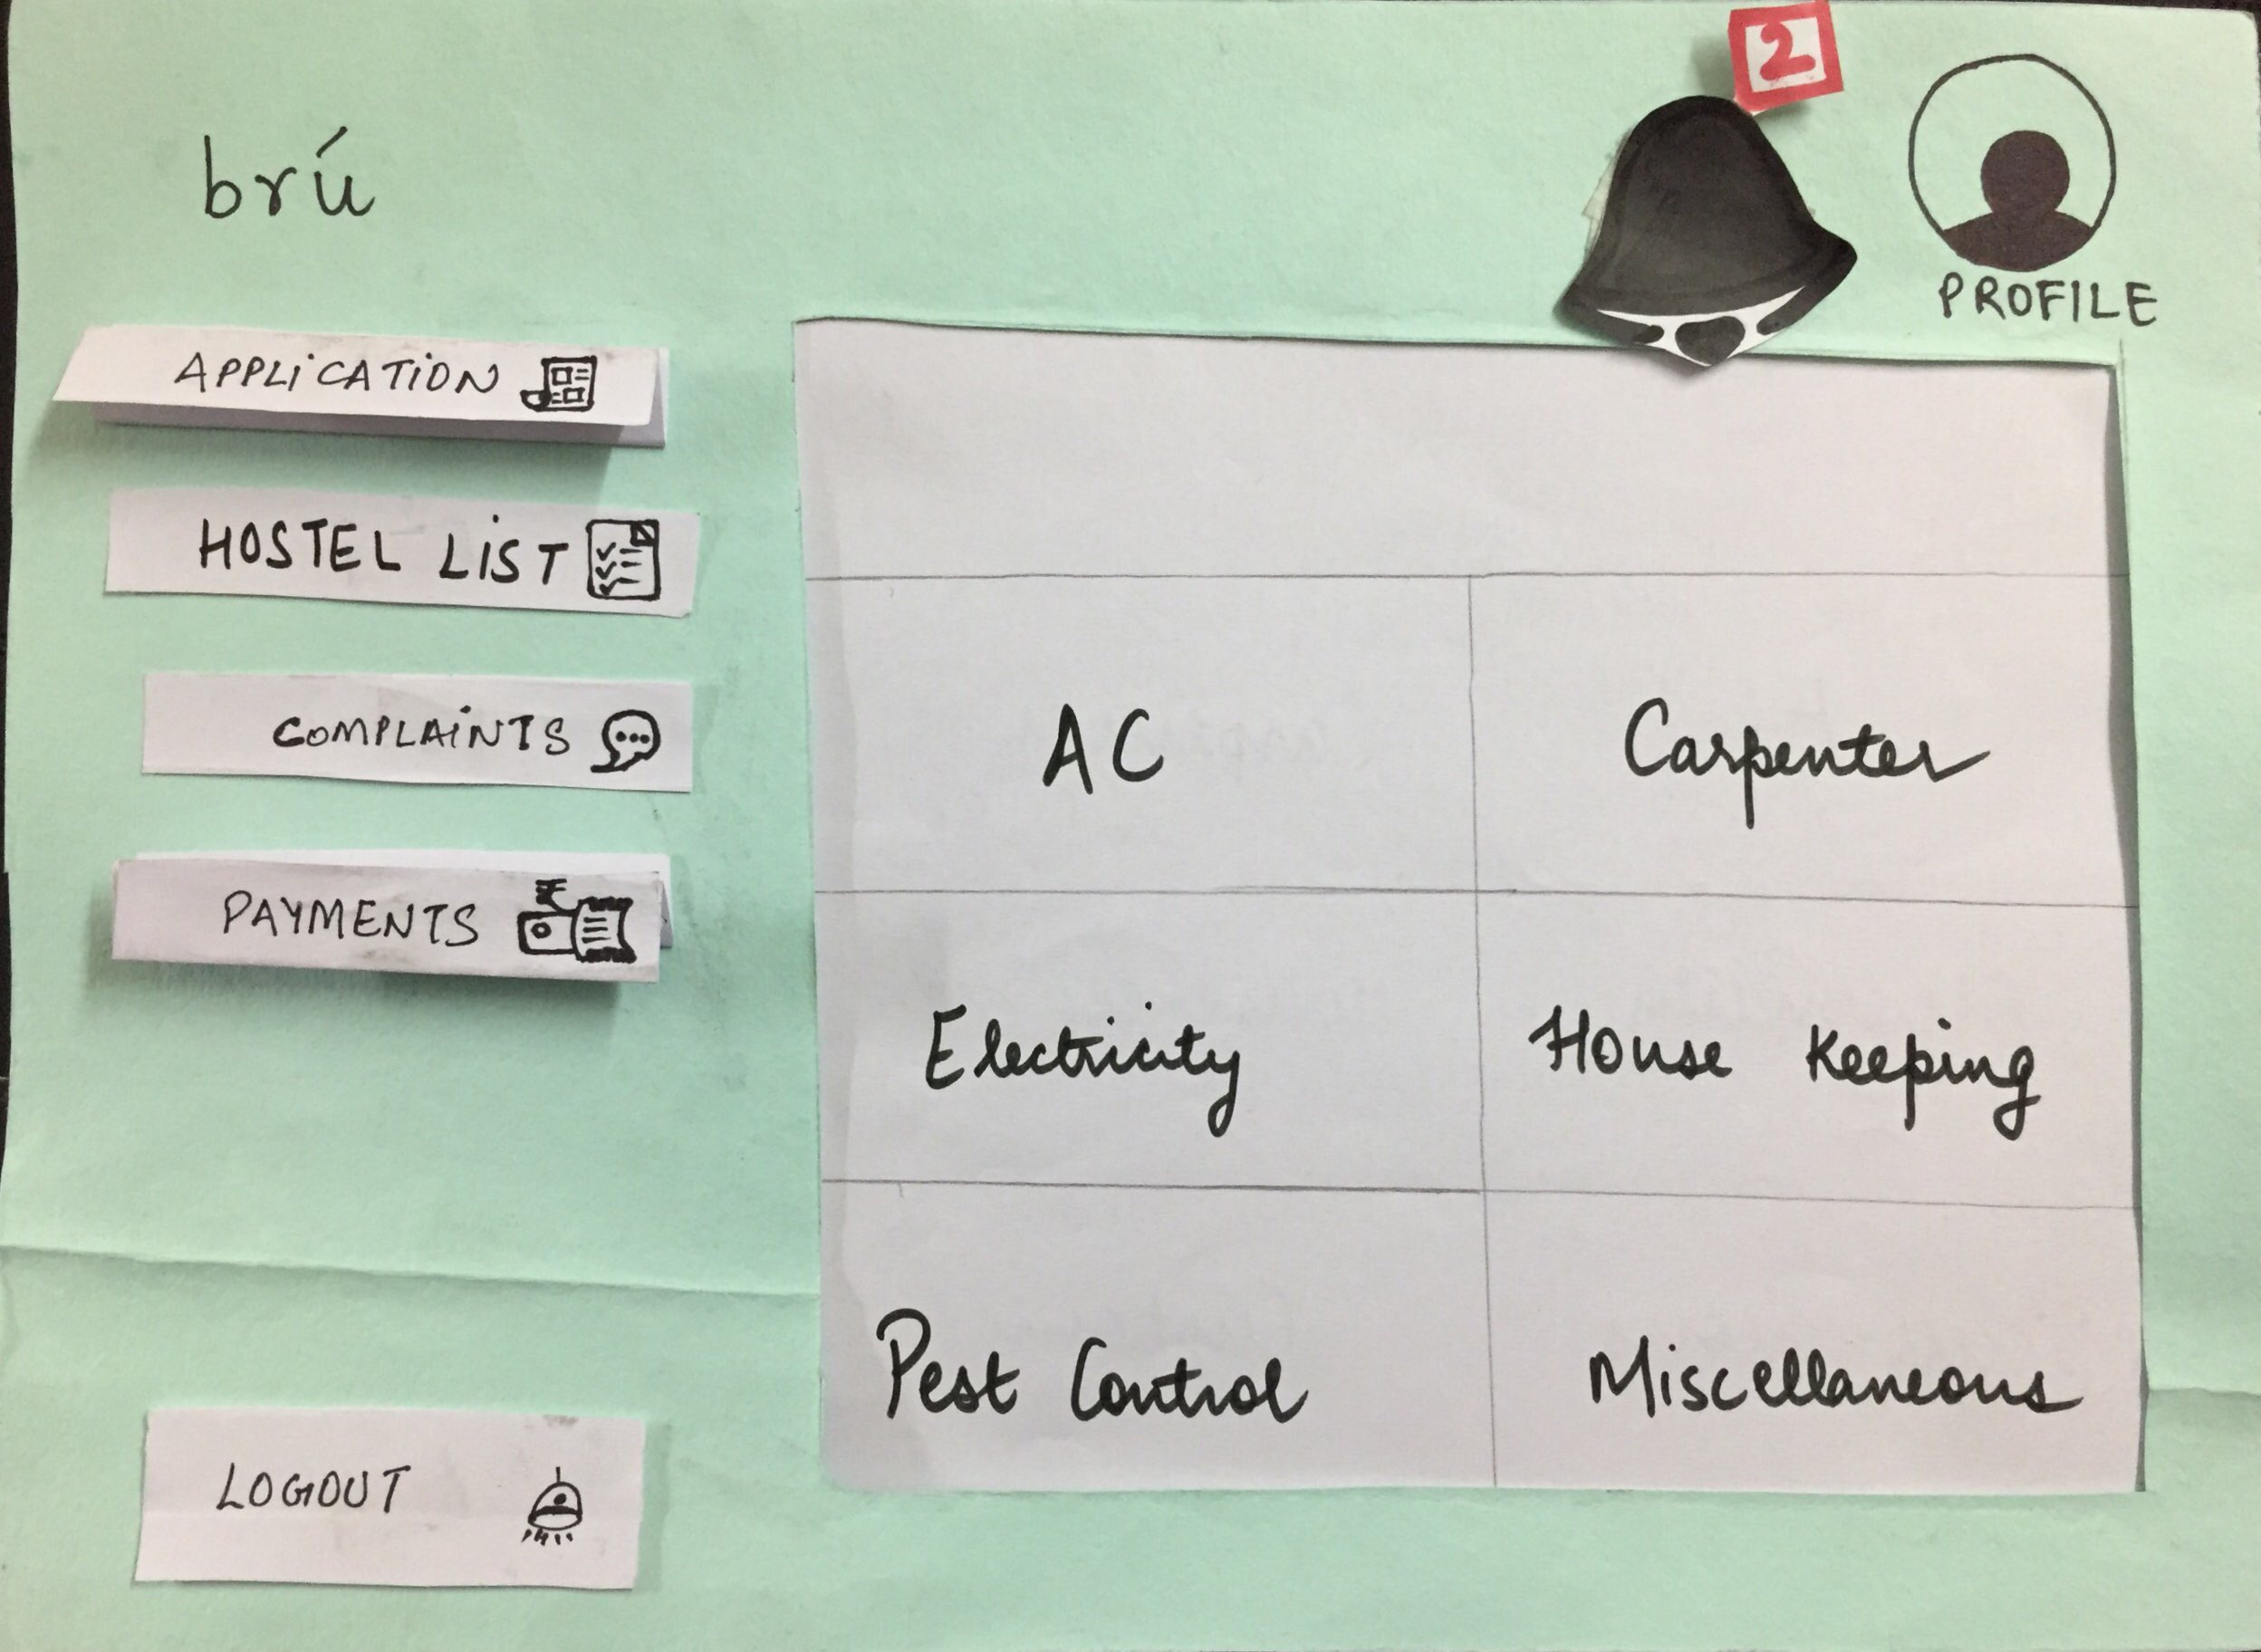 2
brú
PROFILE
APPLICATION
HOSTEL LIST
COMPLAINTS
PAYMENTS ₹
LOGOUT
AC Carpenter
Electricity House Keeping
Pest Control Miscellaneous